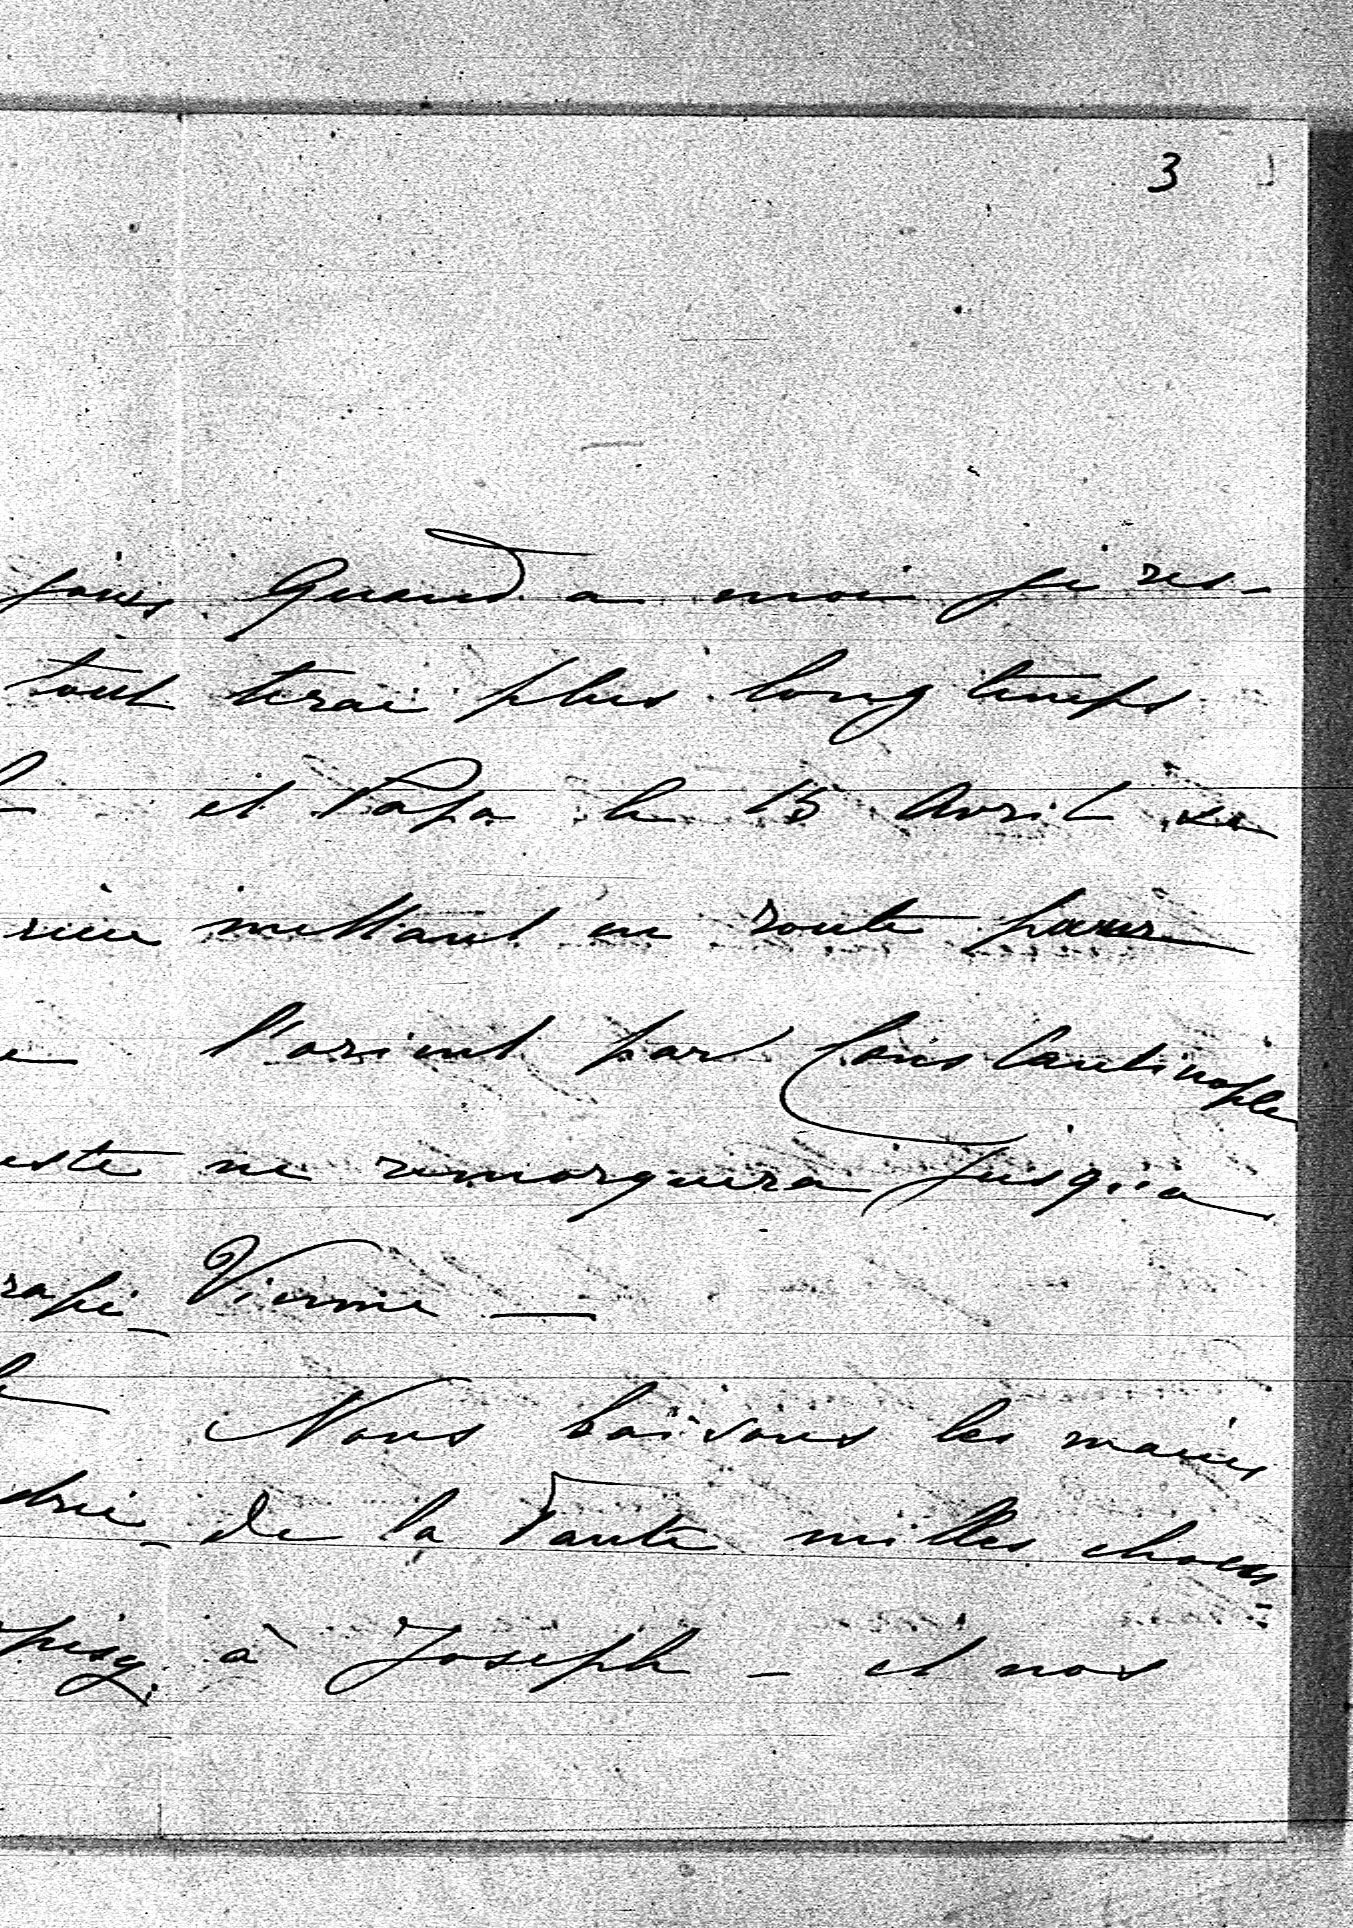 3
jours, Quand a moi je res-
tout terai plus long temps
et Papa le 15 Avril
mettant en route pour
l'orient par Constantinople
este ne remorquera jusqu'a
Vienne —
Nous baisons les mains
de la Tante milles choses
à Joseph - et nos